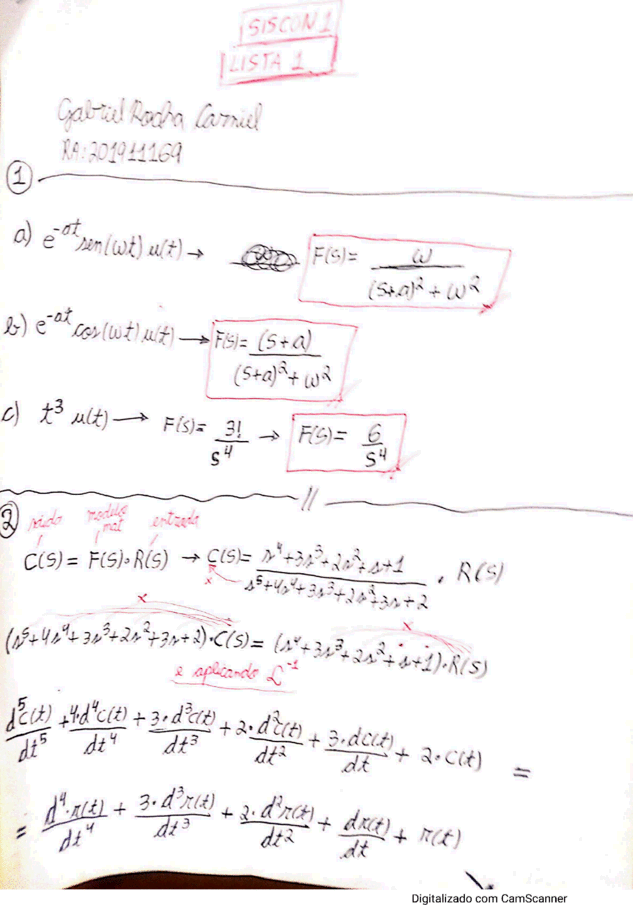 SISCON 1
LISTA 1
Gabriel Rocha Carniel
RA: 201911169
1
a) e^-at sen(ωt) u(t) → F(S)= ω/((S+a)² + ω²)
b) e^-at cos(ωt) u(t) → F(S)= (S+a)/((S+a)² + ω²)
c) t³ u(t) → F(S)= 3!/S⁴ → F(S)= 6/S⁴
//
2
saída modelo mat entrada
C(S) = F(S)·R(S) → C(S)= (s⁴+3s³+2s²+s+1)/(s⁵+4s⁴+3s³+2s²+3s+2) · R(S)
x
x x
(s⁵+4s⁴+3s³+2s²+3s+2)·C(S) = (s⁴+3s³+2s²+s+1)·R(S)
e aplicando L⁻¹
d⁵c(t)/dt⁵ + 4·d⁴c(t)/dt⁴ + 3·d³c(t)/dt³ + 2·d²c(t)/dt² + 3·dc(t)/dt + 2·c(t) =
= d⁴·r(t)/dt⁴ + 3·d³r(t)/dt³ + 2·d²r(t)/dt² + dr(t)/dt + r(t)
Digitalizado com CamScanner